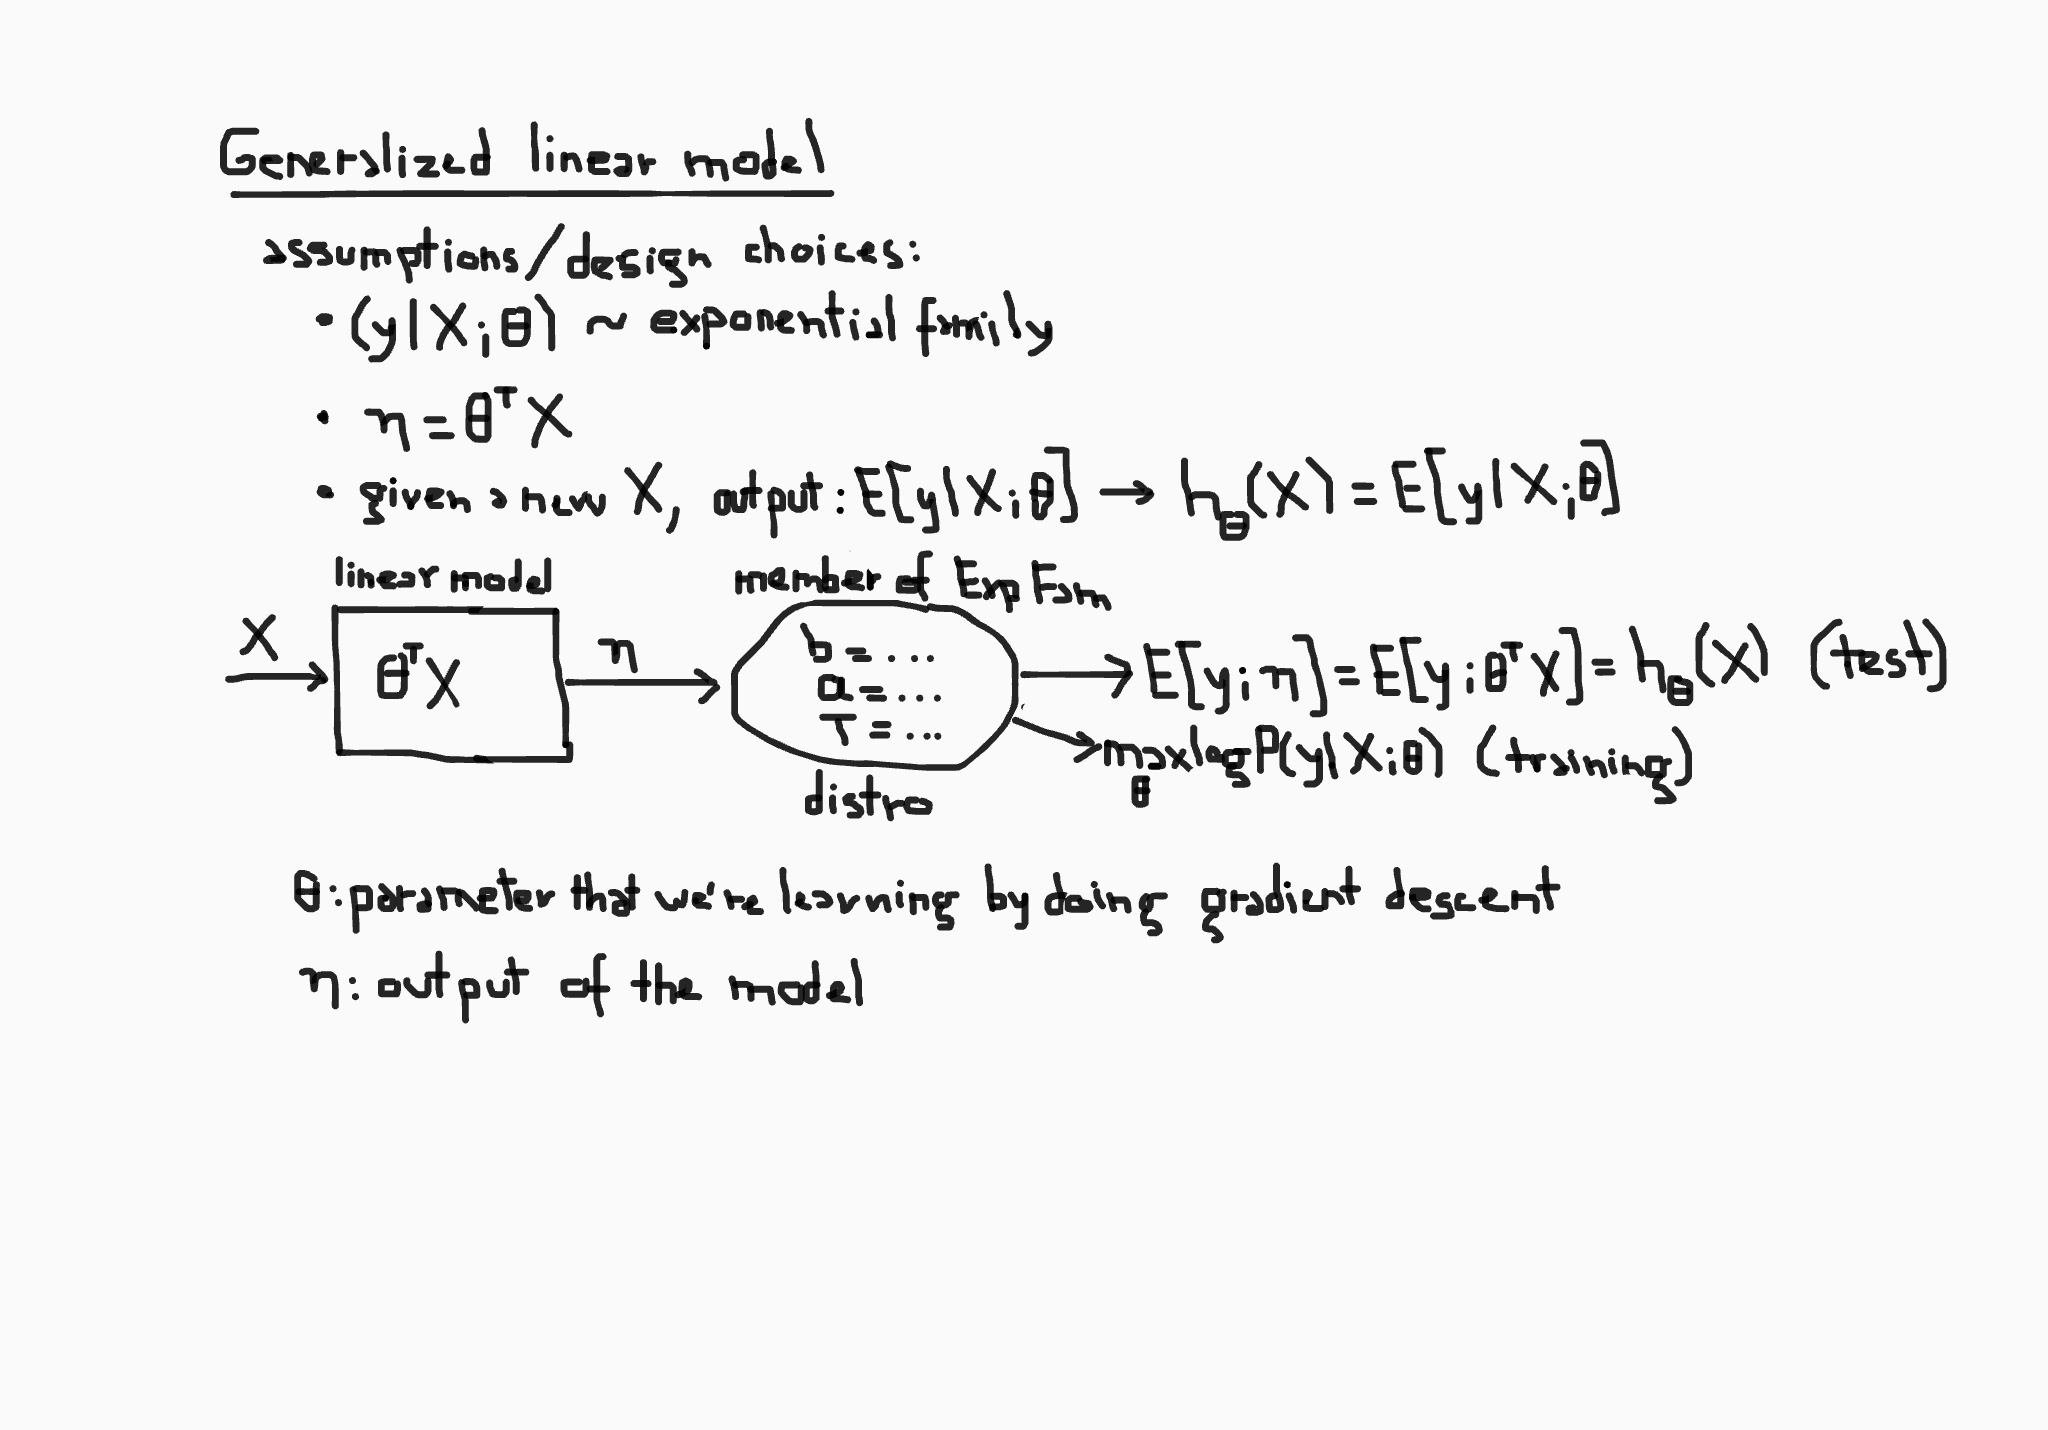 Generalized linear model
assumptions/design choices:
• (y|X;θ) ~ exponential family
• η = θᵀX
• given a new X, output: E[y|X;θ] → h_θ(X) = E[y|X;θ]
linear model
member of ExpFam
X
θᵀX
η
b = ...
a = ...
T = ...
distro
E[y;η] = E[y;θᵀX] = h_θ(X) (test)
max_θ log P(y|X;θ) (training)
θ: parameter that we're learning by doing gradient descent
η: output of the model